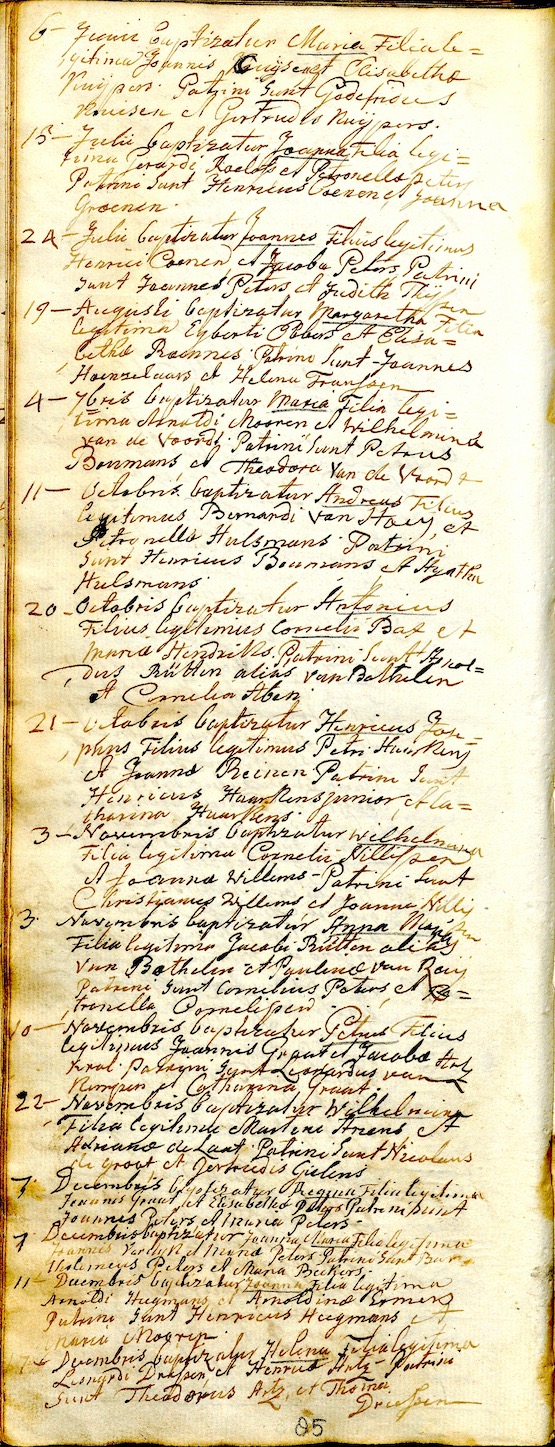 6 - Junii Baptizatur Maria Filia le=
gitima Joannis Cuijsen et Elisabetha
Kuijpers. Patrini Sunt Godefridus
et Gertrudis Kuijpers.
15 - Julii baptizatur Joanna filia legi=
tima Gerardi Roelofs et Petronella Peters
Patrini Sunt Henricus Coenen et Joanna
Groenen.
24 - Julii baptizatur Joannes Filius legitimus
Henrici Coenen et Jacoba Peters Patrini
Sunt Joannes Peters et Judith Thijssen
19 - Augusti baptizatur Margaretha Filia
legitima Egberti Obbers et Elisa=
betha Roennes. Patrini Sunt Joannes
Hoenzelaars et Helena Franssen
4 - 7bris baptizatur Maria Filia legi=
tima Arnoldi Mooren et Wilhelmina
van de Voordt Patrini Sunt Petrus
Boumans et Theodora Van de Voordt
11 - Octobris baptizatur Andreas Filius
legitimus Bernardi Van Haey, et
Petronella Hulsmans. Patrini
Sunt Henricus Boumans et Agatha
Hulsmans
20 - Octobris baptizatur Antonius
Filius legitimus Cornelii Bax et
Maria Hendriks, Patrini Sunt
Rütten alias van Bathelen
et Cornelia Aben
21 - Octobris baptizatur Henricus Jose=
phus Filius legitimus Petri Haurkens
et Joanna Reinen Patrini Sunt
Henricus Haurkens junior, et Ca=
tharina Haurkens.
3 - Novembris baptizatur Wilhelmina
Filia legitima Cornelii Nillissen
et Joanna Willems - Patrini Sunt
Christianus Willems et Joanna Nillissen
3. Novembris baptizatur Anna Maria
Filia legitima Jacobi Rütten alias
Van Bathelen et Paulina van Raij
Patrini Sunt Cornelius Peters et Pe=
tronella Cornelissen
10 - Novembris baptizatur Petrus Filius
legitimus Joannis Graat et Jacoba Arts
Patrini Sunt Leonardus van
Kempen et Catharina Graat.
22 - Novembris baptizatur Wilhelmina
Filia legitima Martini Ariens et
Adriana de Laat. Patrini Sunt Nicolaus
de Groot et Gertrudis Gielens
7. Decembris baptizatur Regina Filia legitima
Joannis Graat et Elisabetha Peters Patrini Sunt
Joannes Peters et Maria Peters.
7 Decembris baptizatur Joanna Maria Filia legitima
Joannis et Maria Peters Patrini Sunt Bar=
tholomeus Peters et Maria Beckers.
11 - Decembris baptizatur Joanna Filia legitima
Arnoldi Hugmans et Arnoldina Ermers
Patrini Sunt Henricus Hugmans et
Maria
Decembris baptizatur Helena Filia legitima
Leonardi Driessen et Henrica Arts - Patrini
Sunt Theodorus Arts, et Thoma
Driessen
85